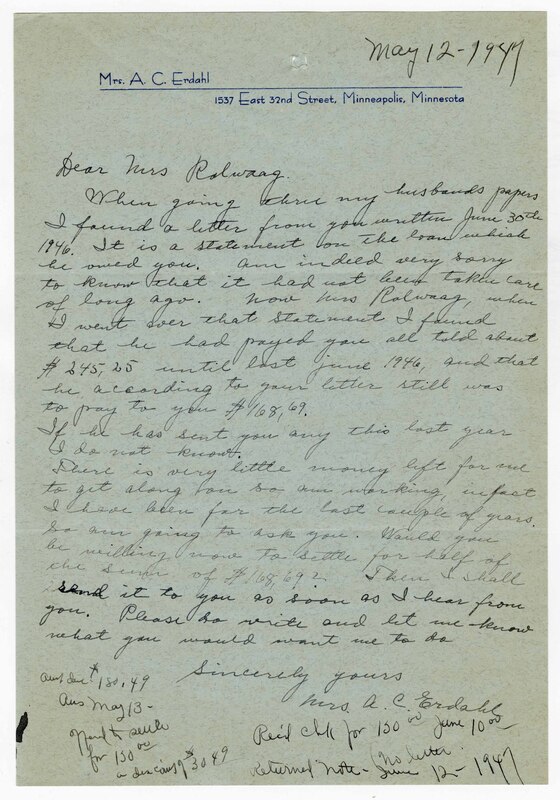 May 12 - 1947
Mrs. A. C. Erdahl
1537 East 32nd Street, Minneapolis, Minnesota
Dear Mrs Rolwaag.
When going thru my husbands papers
I found a letter from you written June 30th
1946. It is a statement on the loan which
he owed you. Am indeed very sorry
to know that it had not been taken care
of long ago. Now Mrs Rolwaag, when
I went over that statement I found
that he had payed you all told about
$245,25 until last june 1946, and that
he according to your letter still was
to pay to you $168,69.
If he has sent you any this last year
I do not know.
There is very little money left for me
to get along on so am working, infact
I have been for the last couple of years.
So am going to ask you. Would you
be willing now to settle for half of
the sum of $168,69? Then I shall
send it to you as soon as I hear from
you. Please do write and let me know
what you would want me to do
Sincerely yours
Mrs. A. C. Erdahl
Amt due $180.49
Ans May 13 -
to settle
for 150 00
a $30.49
Rec'd chk for 150 00 June 10
No letter.
Returned Note - June 12 - 1947